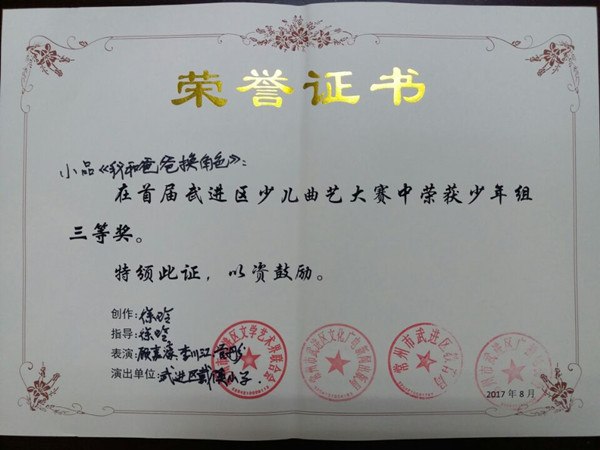 荣誉证书
小品《我和爸爸换角色》:
在首届武进区少儿曲艺大赛中荣获少年组
三等奖。
特颁此证，以资鼓励。
创作:徐晗
指导:徐晗
表演:
演出单位:武进区
常州市武进区文学艺术界联合会
常州市武进区文化广电新闻出版局
常州市武进区教育局
2017年8月